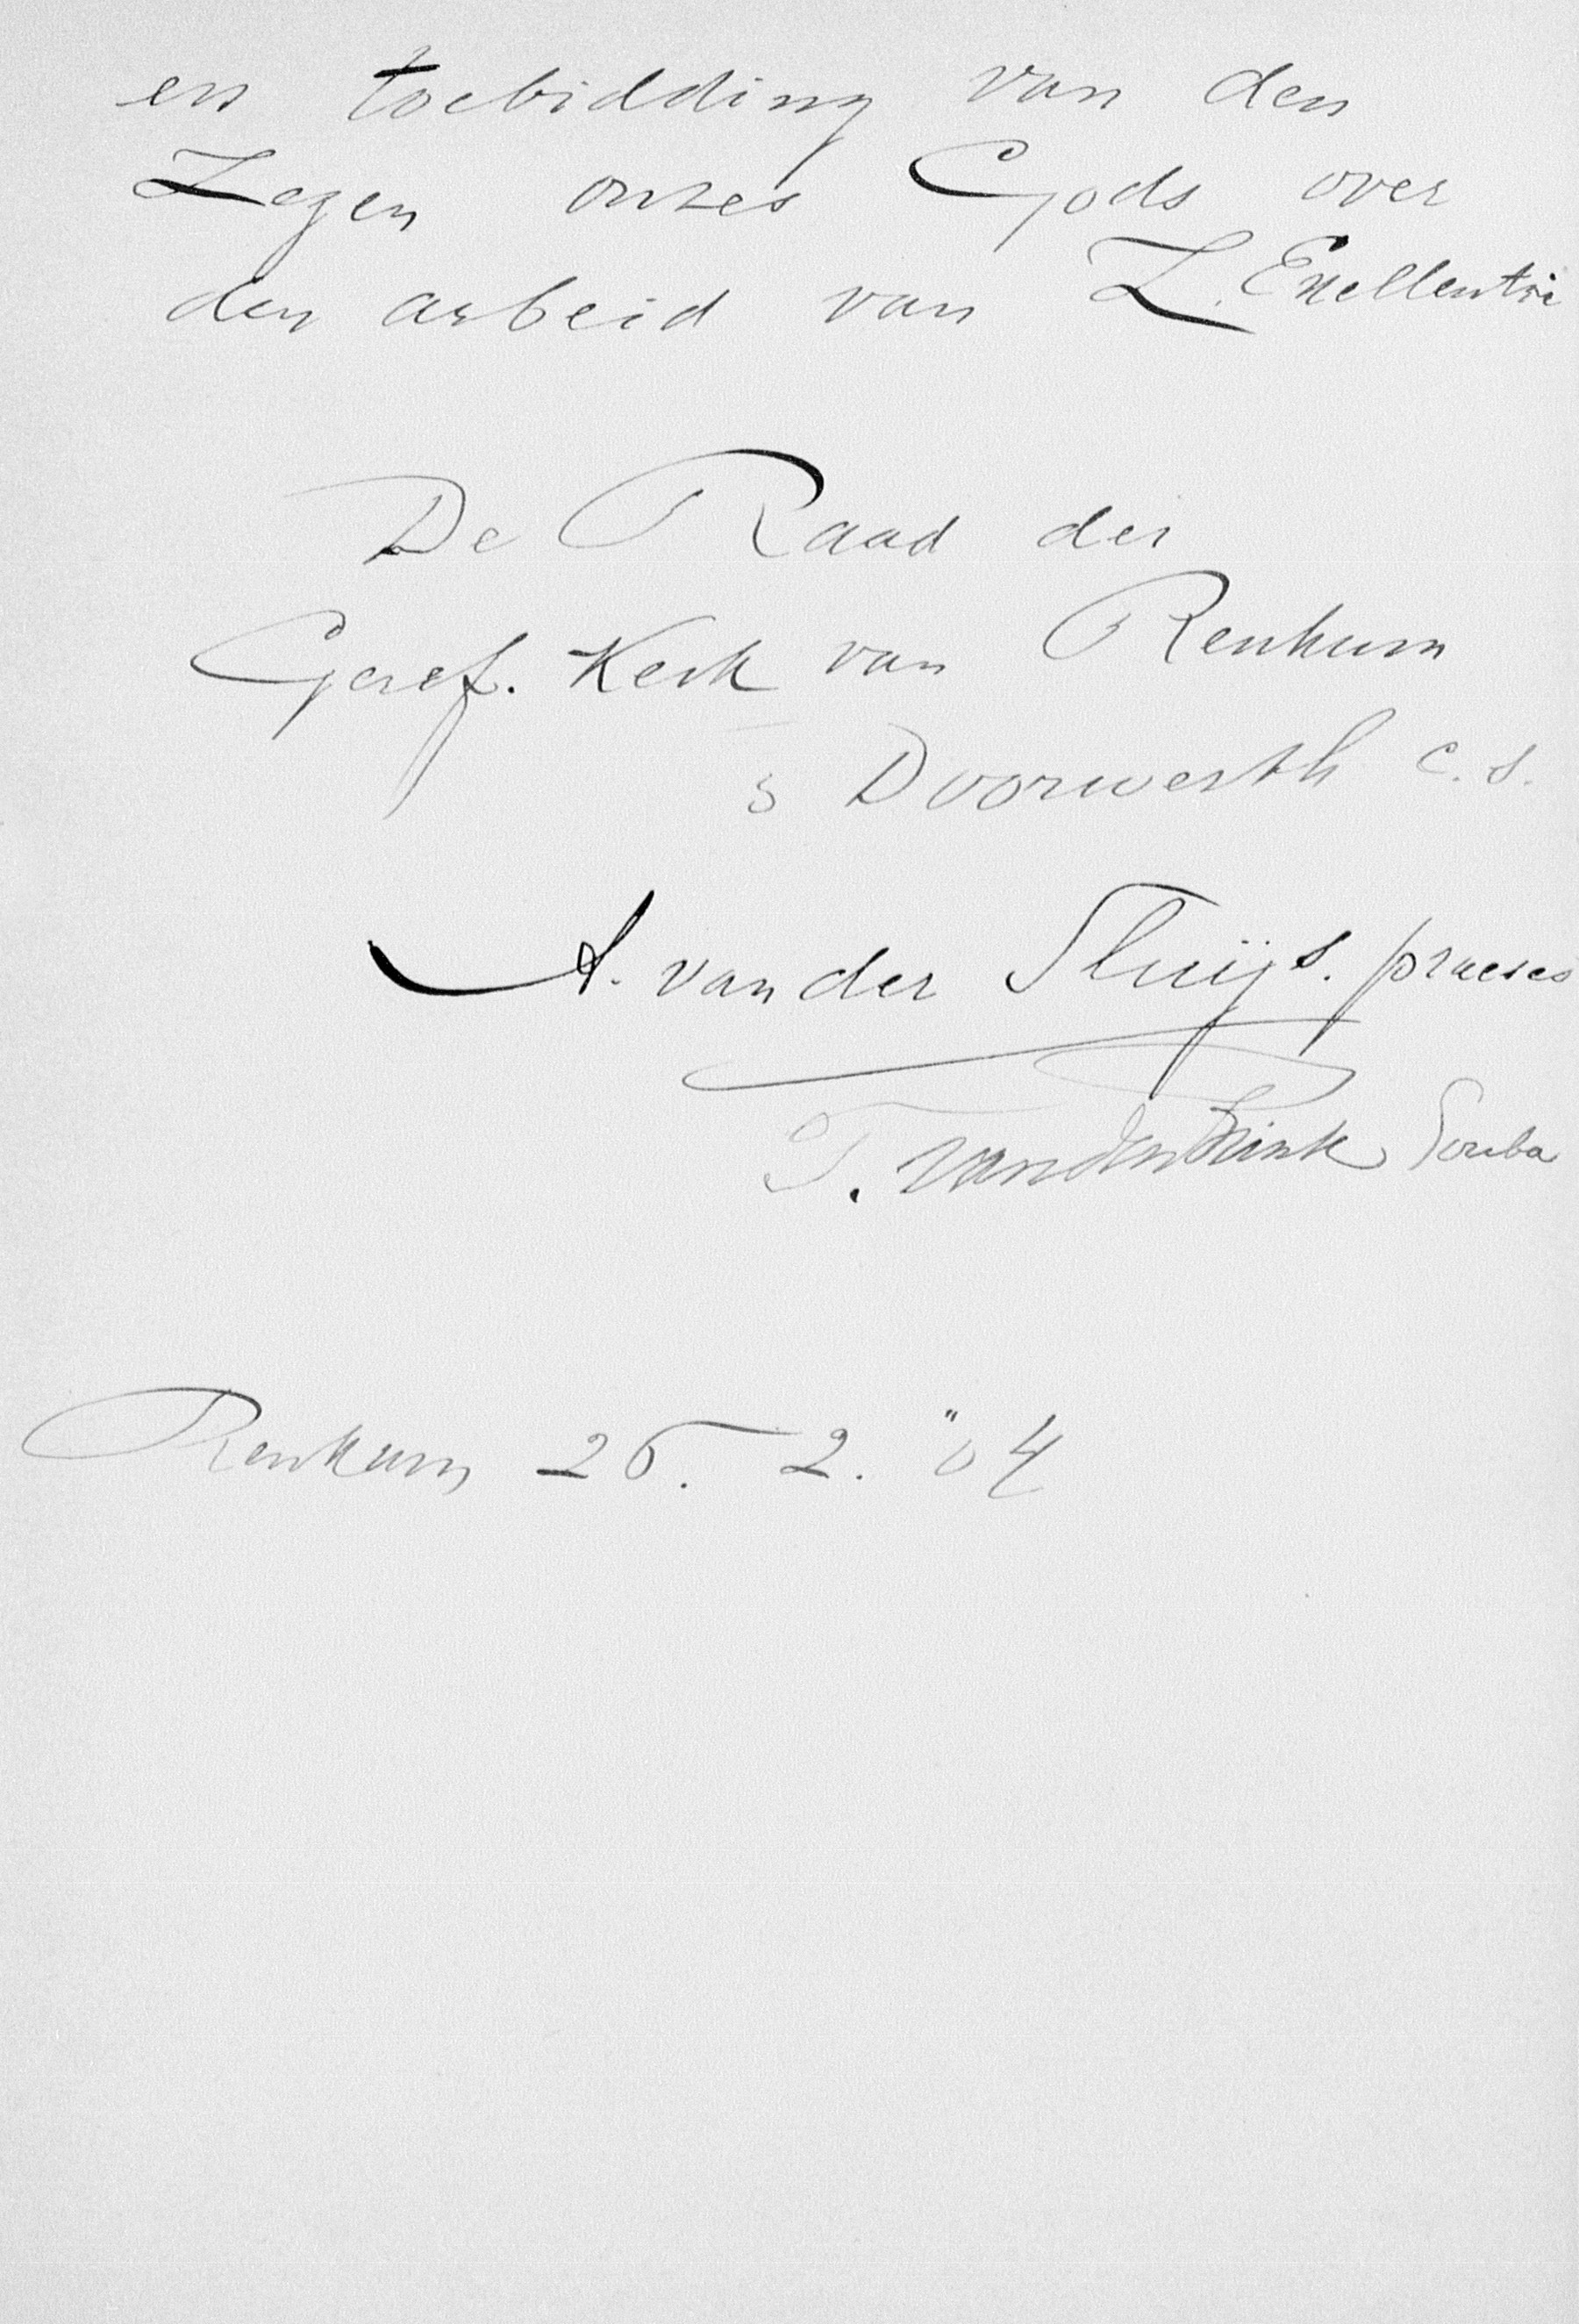 en toebidding van den
Zegen onzes Gods over
den arbeid van Z. Exellentie
De Raad der
Geref. Kerk van Renkum
Doorwerth c.s.
A. van der Sluijs. praeses
T. van den Brink Scriba
Renkum 26. 2. "04